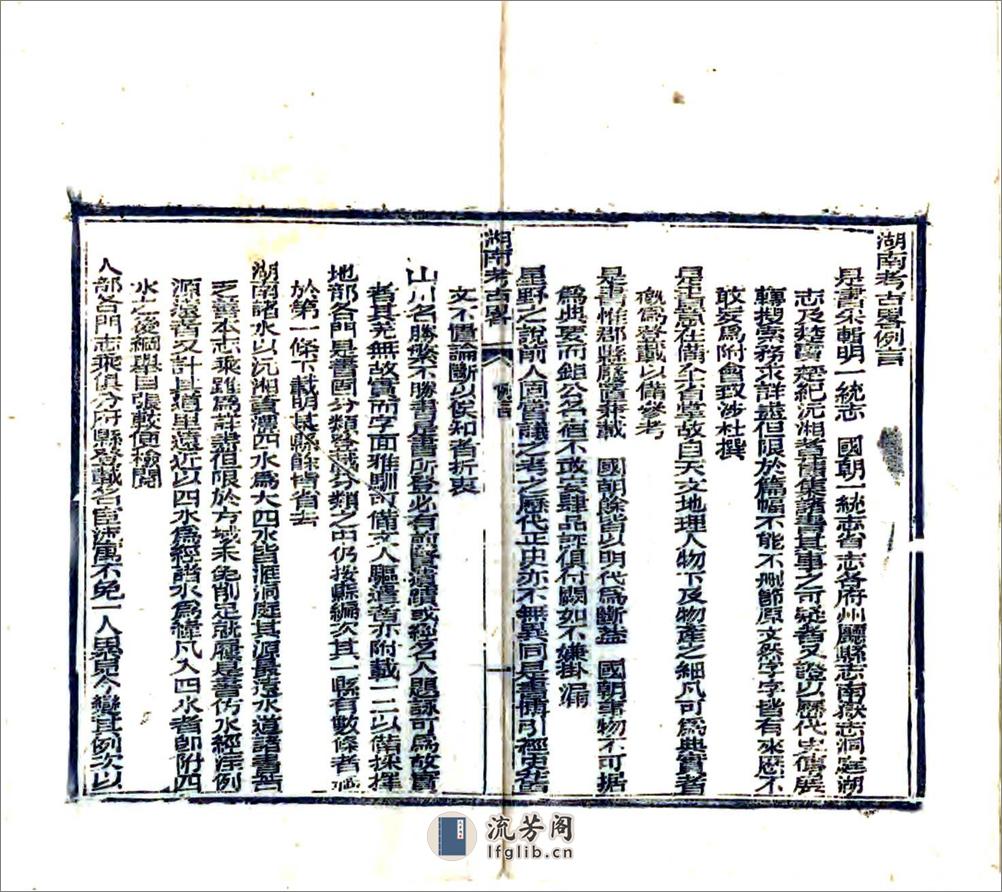 湖南考古畧例言
是書采輯明一統志　國朝一統志省志各府州廳縣志南嶽志洞庭湖
志及楚寶楚紀沅湘耆舊集諸書其事之可疑者又證以歷代史傳展
轉搜索務求詳盡但限於篇幅不能不刪節原文然字字皆有來歷不
敢妄為附會致涉杜撰
是書意在備
故自天文地理人物下及物產之細凡可為典實者
概為登載以備參考
是書惟郡縣
載　國朝餘皆以明代為斷蓋　國朝事物不可据
為典要而鉅公名宿不敢恣肆品評俱付闕如不嫌掛漏
星野之說前人固嘗議之考之歷代正史亦不無異同是書備引經史舊
文不慣論斷以俟知者折衷
湖南考古畧　卷　例言　一
山川名勝繁不勝書是書所登必有前賢遺蹟或經名人題詠可為故實
者其充無故實而字面雅馴可備文人驅遣者亦附載一二以備採擇
地部各門是書固分類登載分類之中仍按縣編次其一縣有數條者
於第一條下載明某縣餘皆省去
湖南諸水以沅湘資澧四水為大四水皆滙洞庭其源最遠水道諸書苦
乏善本志乘雖為詳譜但限於方域未免削足就履是書仿水經注例
源遠者又計其道里遠近以四水為經諸水為緯凡入四水者卽附四
水之後綱舉目張較便檢閱
人部各門志乘俱分府縣登載名宦流寓不免一人累見今變其例次以
流芳阁
lfglib.cn